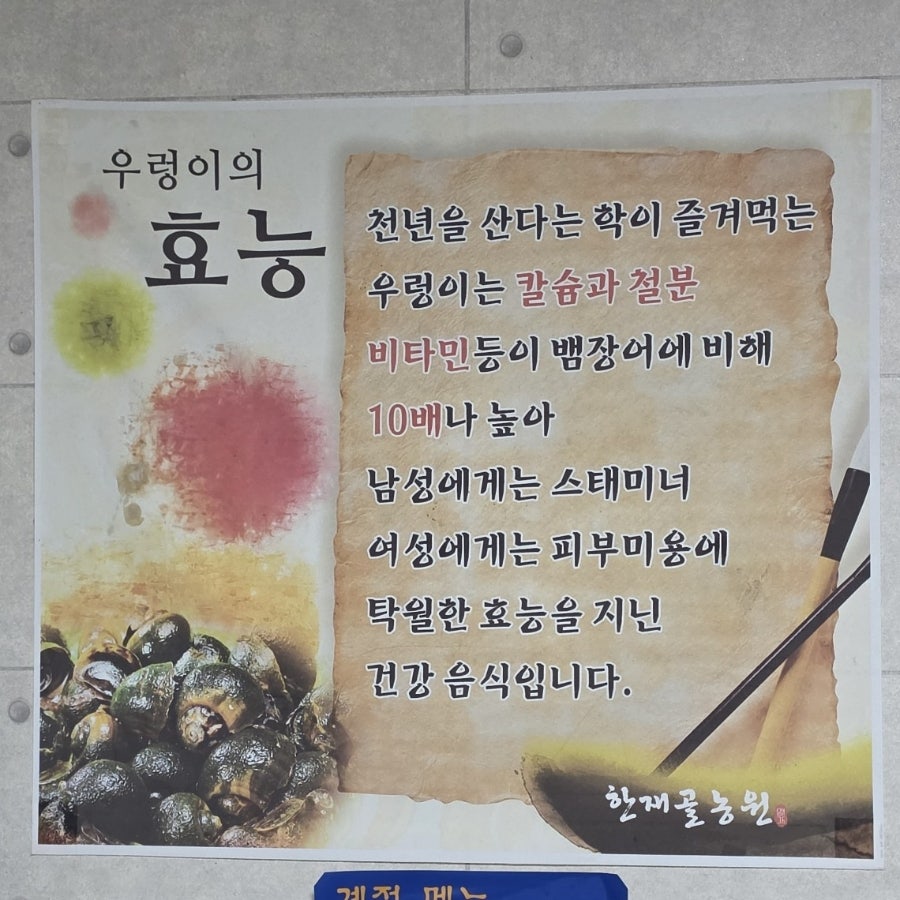 우렁이의
효능
천년을 산다는 학이 즐겨먹는
우렁이는 칼슘과 철분
비타민등이 뱀장어에 비해
10배나 높아
남성에게는 스태미너
여성에게는 피부미용에
탁월한 효능을 지닌
건강 음식입니다.
한재골농원